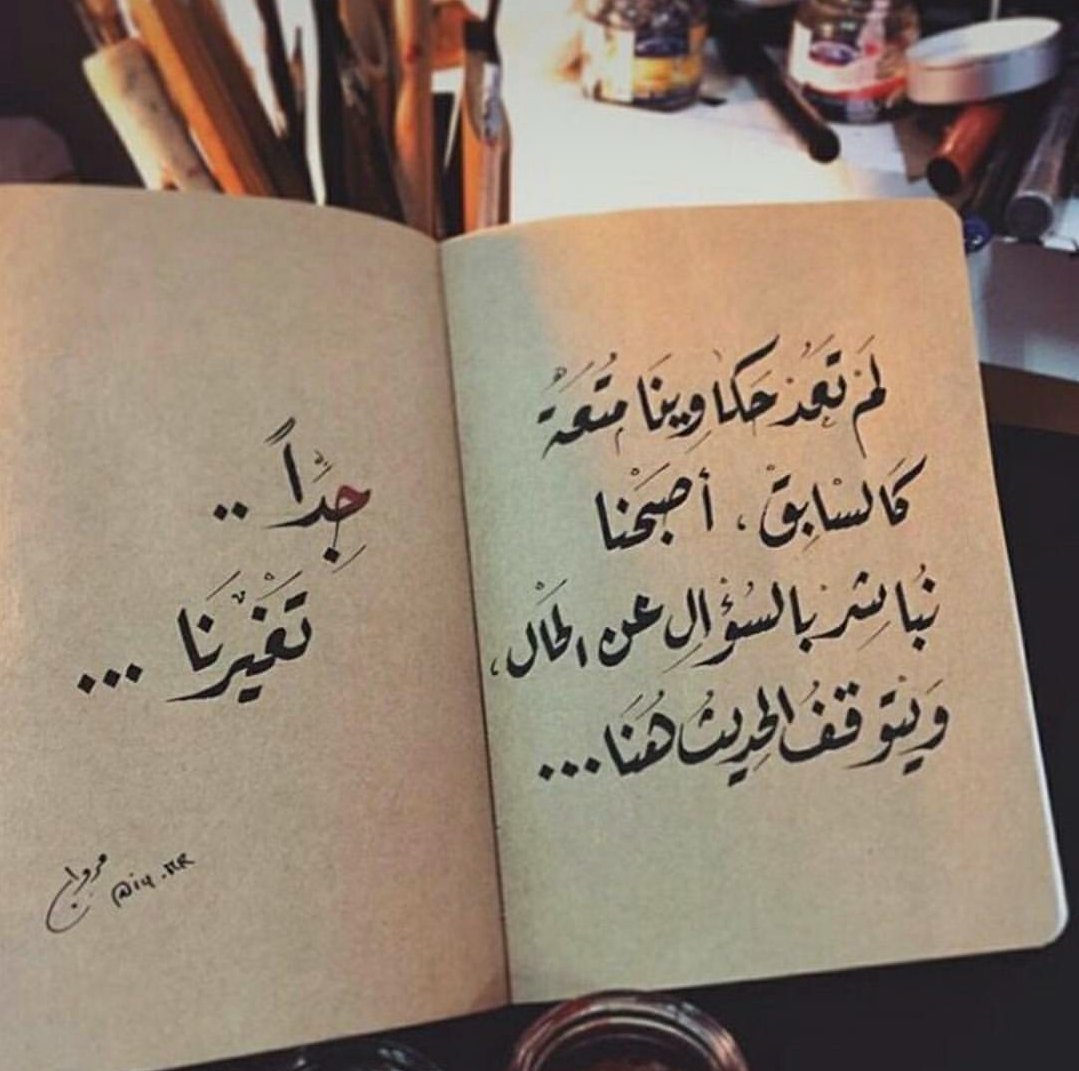 لَمْ تَعُدْ حَكَاوِينَا مُتعَةٌ
كَالسّابِقْ، أصبَحْنا
نُباشِرْ بالسُؤالِ عن الحَال،
وَيَتوقفُ الحِديثُ هُنَا...
جِدَّاً ..
تَغيْرنَا ...
مروان